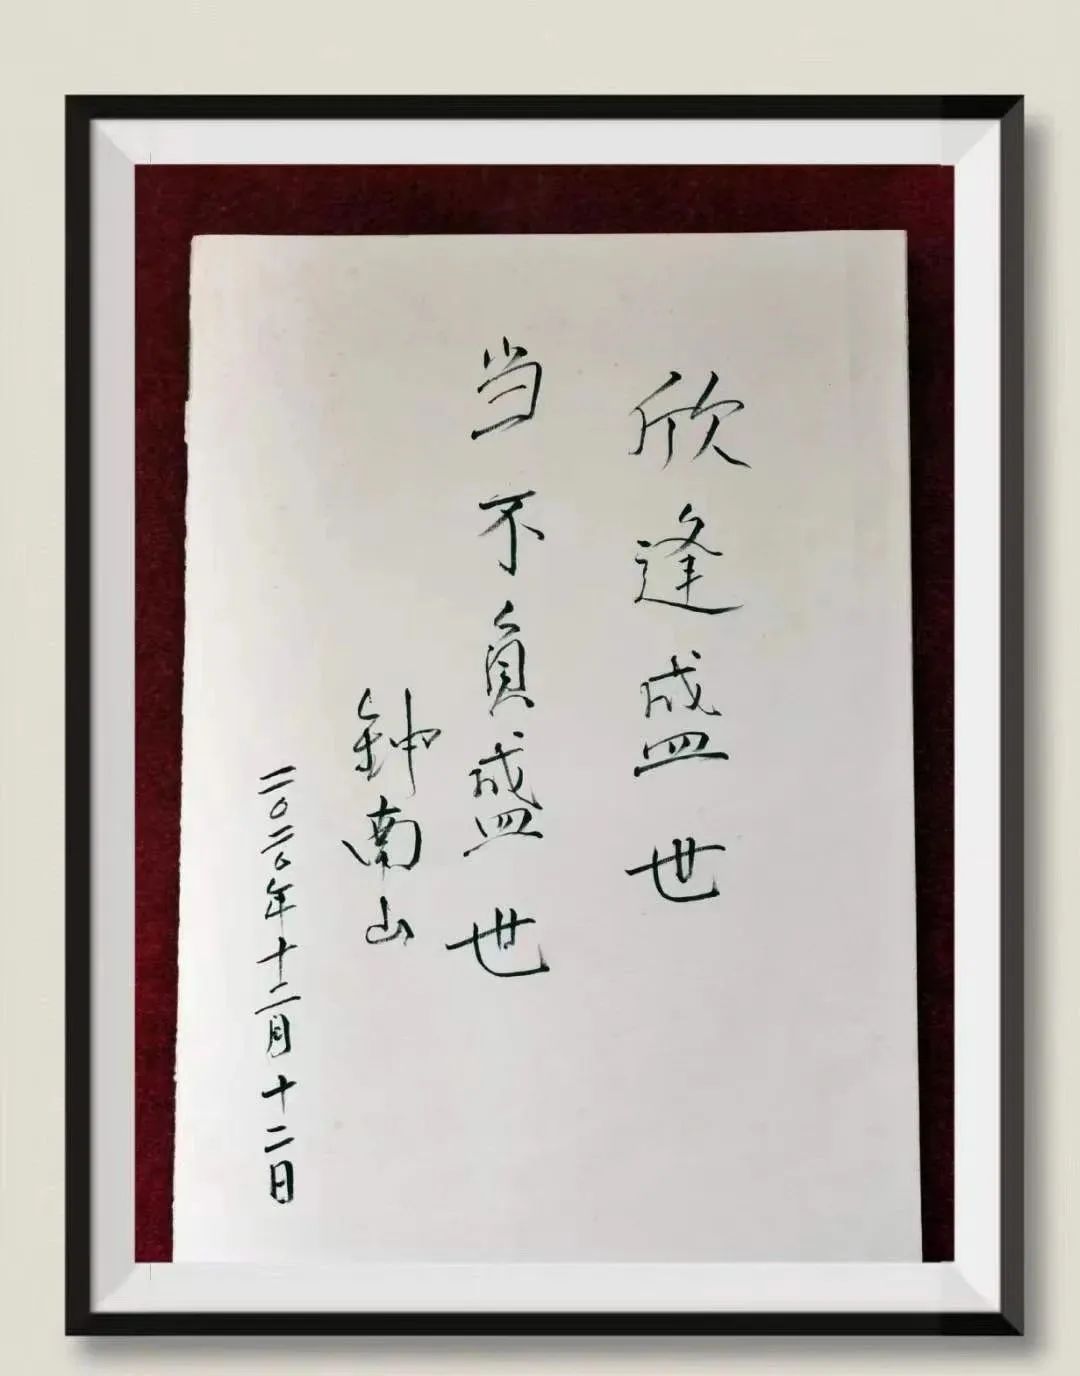 欣逢盛世
当不负盛世
钟南山
二〇二〇年十二月十二日